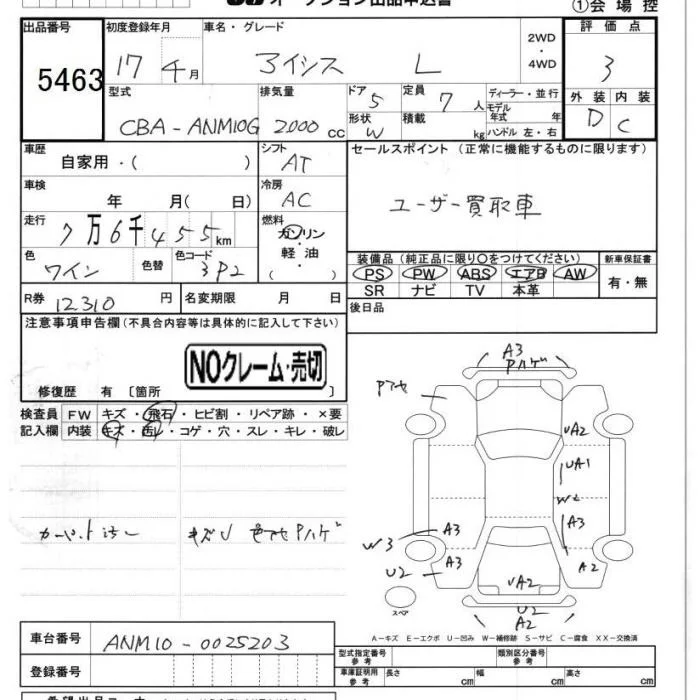 オークション出品申込書
①会場控
出品番号 初度登録年月 車名・グレード 評価点
5463 17年 4月 アイシス L 2WD・4WD 3
型式 排気量 ドア 5 定員 7人 ディーラー・並行 外装 内装
CBA-ANM10G 2000cc 形状 W 積載 kg モデル年式 年 ハンドル 左・右 D C
車歴 自家用・( ) シフト AT セールスポイント (正常に機能するものに限ります)
車検 年 月(日) 冷房 AC ユーザー買取車
走行 7万6千455km 燃料 ガソリン・軽油・( )
色 ワイン 色替 色コード 3P2
装備品 (純正品に限り○をつけてください) 新車保証書
PS PW ABS エアB AW 有・無
SR ナビ TV 本革
R券 12310円 名変期限 月 日 後日品
注意事項申告欄 (不具合内容等は具体的に記入して下さい)
NOクレーム・売切
修復歴 有 〔箇所 〕
検査員 FW キズ・飛石・ヒビ割・リペア跡・×要
記入欄 内装 キズ・汚レ・コゲ・穴・スレ・キレ・破レ
A3
Pハゲ
Pアセ
UA2
UA1
W2
A3 A3
W3 A3 A2
U2
UA2
U2
A2
スペア
A-キズ E-エクボ U-凹み W-補修跡 S-サビ C-腐食 XX-交換済
車台番号 ANM10-0025203
型式指定番号 参考 類別区分番号 参考
登録番号 車庫証明用 参考 長さ cm 幅 cm 高さ cm